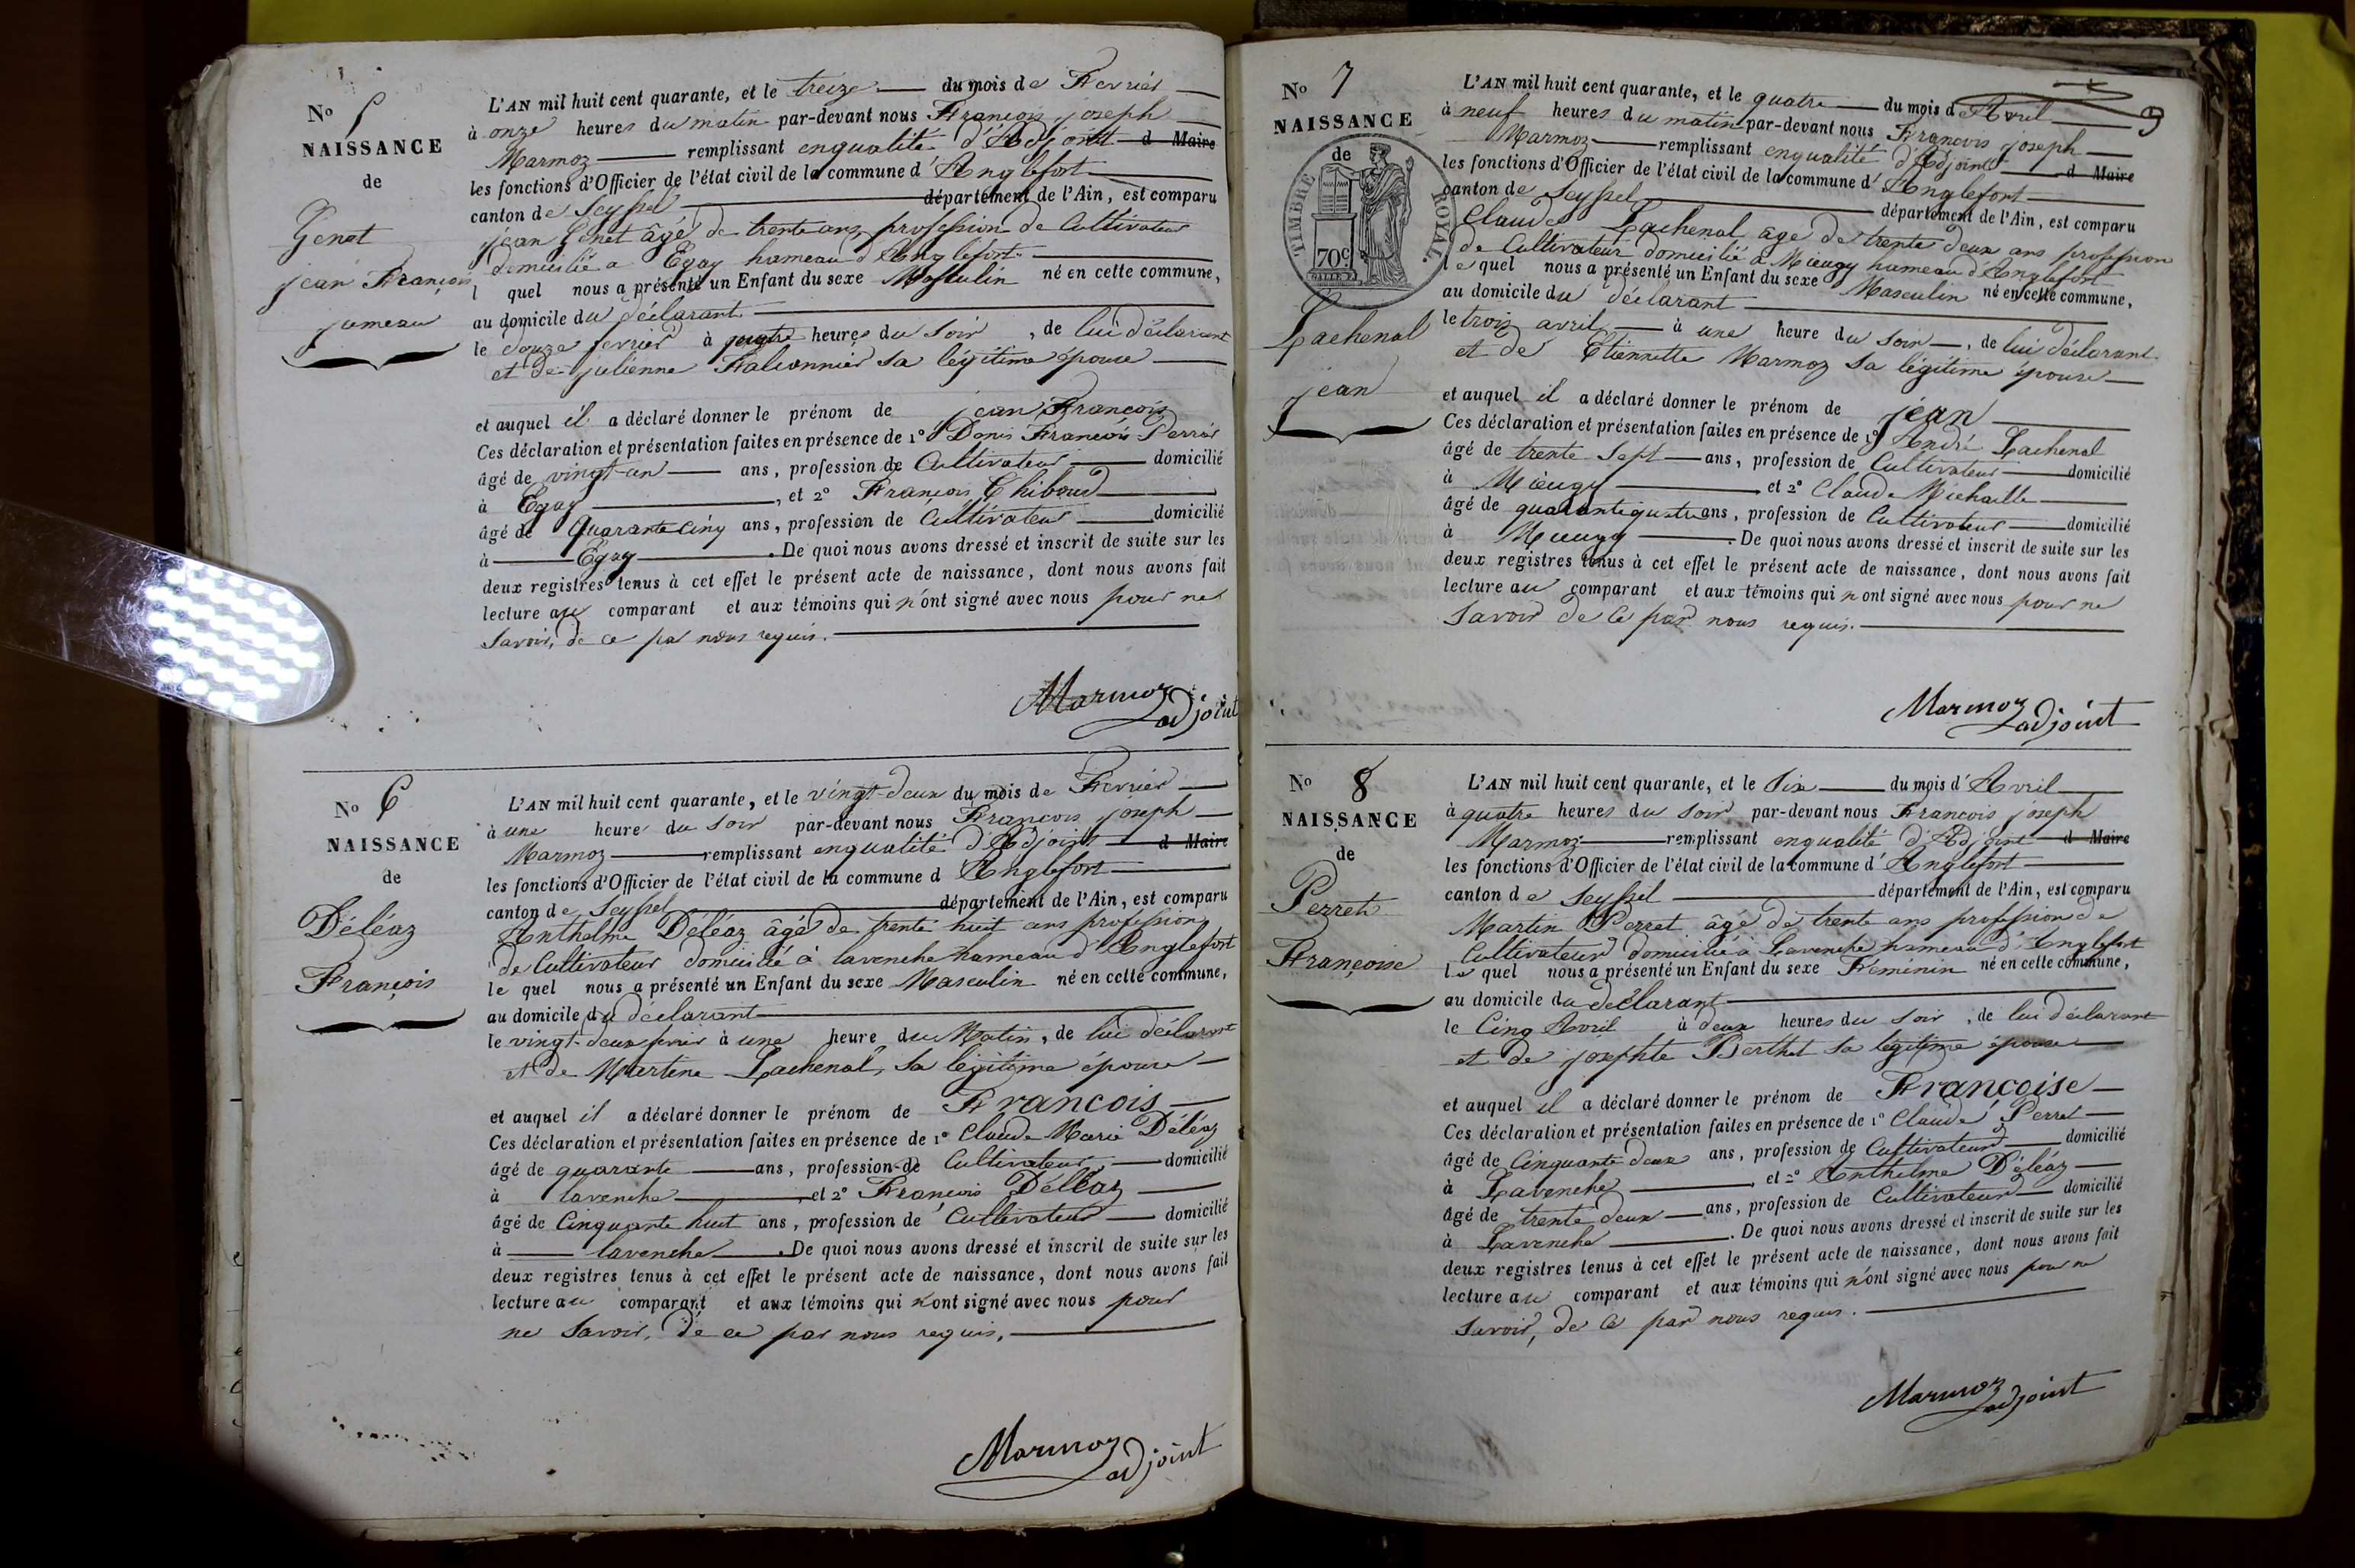 No 5
NAISSANCE
de
Genet
jean François
jumeau
L'AN mil huit cent quarante, et le treize du mois de Fevrier
à onze heures du matin par-devant nous François joseph
Marmoz remplissant enqualité d'Adjoint d Maire
les fonctions d'Officier de l'état civil de la commune d'Anglefort
canton de Seyssel département de l'Ain, est comparu
jean Genet âgé de trente ans profession de Cultivateur
domicilié a Egay hameau d'Anglefort
l quel nous a présenté un Enfant du sexe Masculin né en cette commune,
au domicile du déclarant
le douze fevrier à quatre heures du Soir, de lui déclarant
et de julienne Falconnier sa légitime épouse
et auquel il a déclaré donner le prénom de jean François
Ces déclaration et présentation faites en présence de 1º Denis François Perret
âgé de vingt-un ans, profession de Cultivateur domicilié
à Egay, et 2º François Chiboud
âgé de Quarante cinq ans, profession de Cultivateur domicilié
à Egay. De quoi nous avons dressé et inscrit de suite sur les
deux registres tenus à cet effet le présent acte de naissance, dont nous avons fait
lecture au comparant et aux témoins qui n'ont signé avec nous pour ne
Savoir, de ce par nous requis.
Marmoz
adjoint
No 6
NAISSANCE
de
Déléaz
François
L'AN mil huit cent quarante, et le vingt-deux du mois de Fevrier
à une heure du Soir par-devant nous François joseph
Marmoz remplissant enqualité d'Adjoint d Maire
les fonctions d'Officier de l'état civil de la commune d Anglefort
canton de Seyssel département de l'Ain, est comparu
Anthelme Déléaz âgé de trente huit ans profession
de Cultivateur domicilié à lavenche hameau d'Anglefort
le quel nous a présenté un Enfant du sexe Masculin né en cette commune,
au domicile du déclarant
le vingt-deux fvrier à une heure du Matin, de lui déclarant
et de Martine Lachenal, sa légitime épouse
et auquel il a déclaré donner le prénom de François
Ces déclaration et présentation faites en présence de 1º Claude Marie Déléaz
âgé de quarante ans, profession de Cultivateur domicilié
à lavenche, et 2º François Déléaz
âgé de Cinquante huit ans, profession de Cultivateur domicilié
à lavenche. De quoi nous avons dressé et inscrit de suite sur les
deux registres tenus à cet effet le présent acte de naissance, dont nous avons fait
lecture au comparant et aux témoins qui n'ont signé avec nous pour
ne Savoir, de ce par nous requis,
Marmoz
adjoint
9
No 7
NAISSANCE
de
TIMBRE ROYAL.
70c
Lachenal
jean
L'AN mil huit cent quarante, et le quatre du mois d'Avril
à neuf heures du matin par-devant nous François joseph
Marmoz remplissant enqualité d'Adjoint d Maire
les fonctions d'Officier de l'état civil de la commune d'Anglefort
canton de Seyssel département de l'Ain, est comparu
Claude Lachenal âgé de trente deux ans profession
de Cultivateur domicilié à Mieugy hameau d'Anglefort
le quel nous a présenté un Enfant du sexe Masculin né en cette commune,
au domicile du déclarant
le trois avril à une heure du soir, de lui déclarant
et de Etiennette Marmoz sa légitime épouse
et auquel il a déclaré donner le prénom de jean
Ces déclaration et présentation faites en présence de 1º André Lachenal
âgé de trente Sept ans, profession de Cultivateur domicilié
à Mieugy et 2º Claude Michaille
âgé de quarante quatre ans, profession de Cultivateur domicilié
à Mieugy. De quoi nous avons dressé et inscrit de suite sur les
deux registres tenus à cet effet le présent acte de naissance, dont nous avons fait
lecture au comparant et aux témoins qui n ont signé avec nous pour ne
Savoir de ce par nous requis.
Marmoz
adjoint
No 8
NAISSANCE
de
Perret
Françoise
L'AN mil huit cent quarante, et le Six du mois d'Avril
à quatre heures du Soir par-devant nous François joseph
Marmoz remplissant enqualité d'Adjoint d Maire
les fonctions d'Officier de l'état civil de la commune d'Anglefort
canton de Seyssel département de l'Ain, est comparu
Martin Perret âgé de trente ans profession de
Cultivateur domicilié à Lavenche hameau d'Anglefort
le quel nous a présenté un Enfant du sexe Féminin né en cette commune,
au domicile du déclarant
le Cinq Avril à deux heures du soir, de lui déclarant
et de josephte Berthet sa légitime épouse
et auquel il a déclaré donner le prénom de Françoise
Ces déclaration et présentation faites en présence de 1º Claude Perret
âgé de Cinquante deux ans, profession de Cultivateur domicilié
à Lavenche, et 2º Anthelme Déléaz
âgé de trente deux ans, profession de Cultivateur domicilié
à Lavenche. De quoi nous avons dressé et inscrit de suite sur les
deux registres tenus à cet effet le présent acte de naissance, dont nous avons fait
lecture au comparant et aux témoins qui n'ont signé avec nous pour ne
Savoir, de ce par nous requis.
Marmoz
adjoint